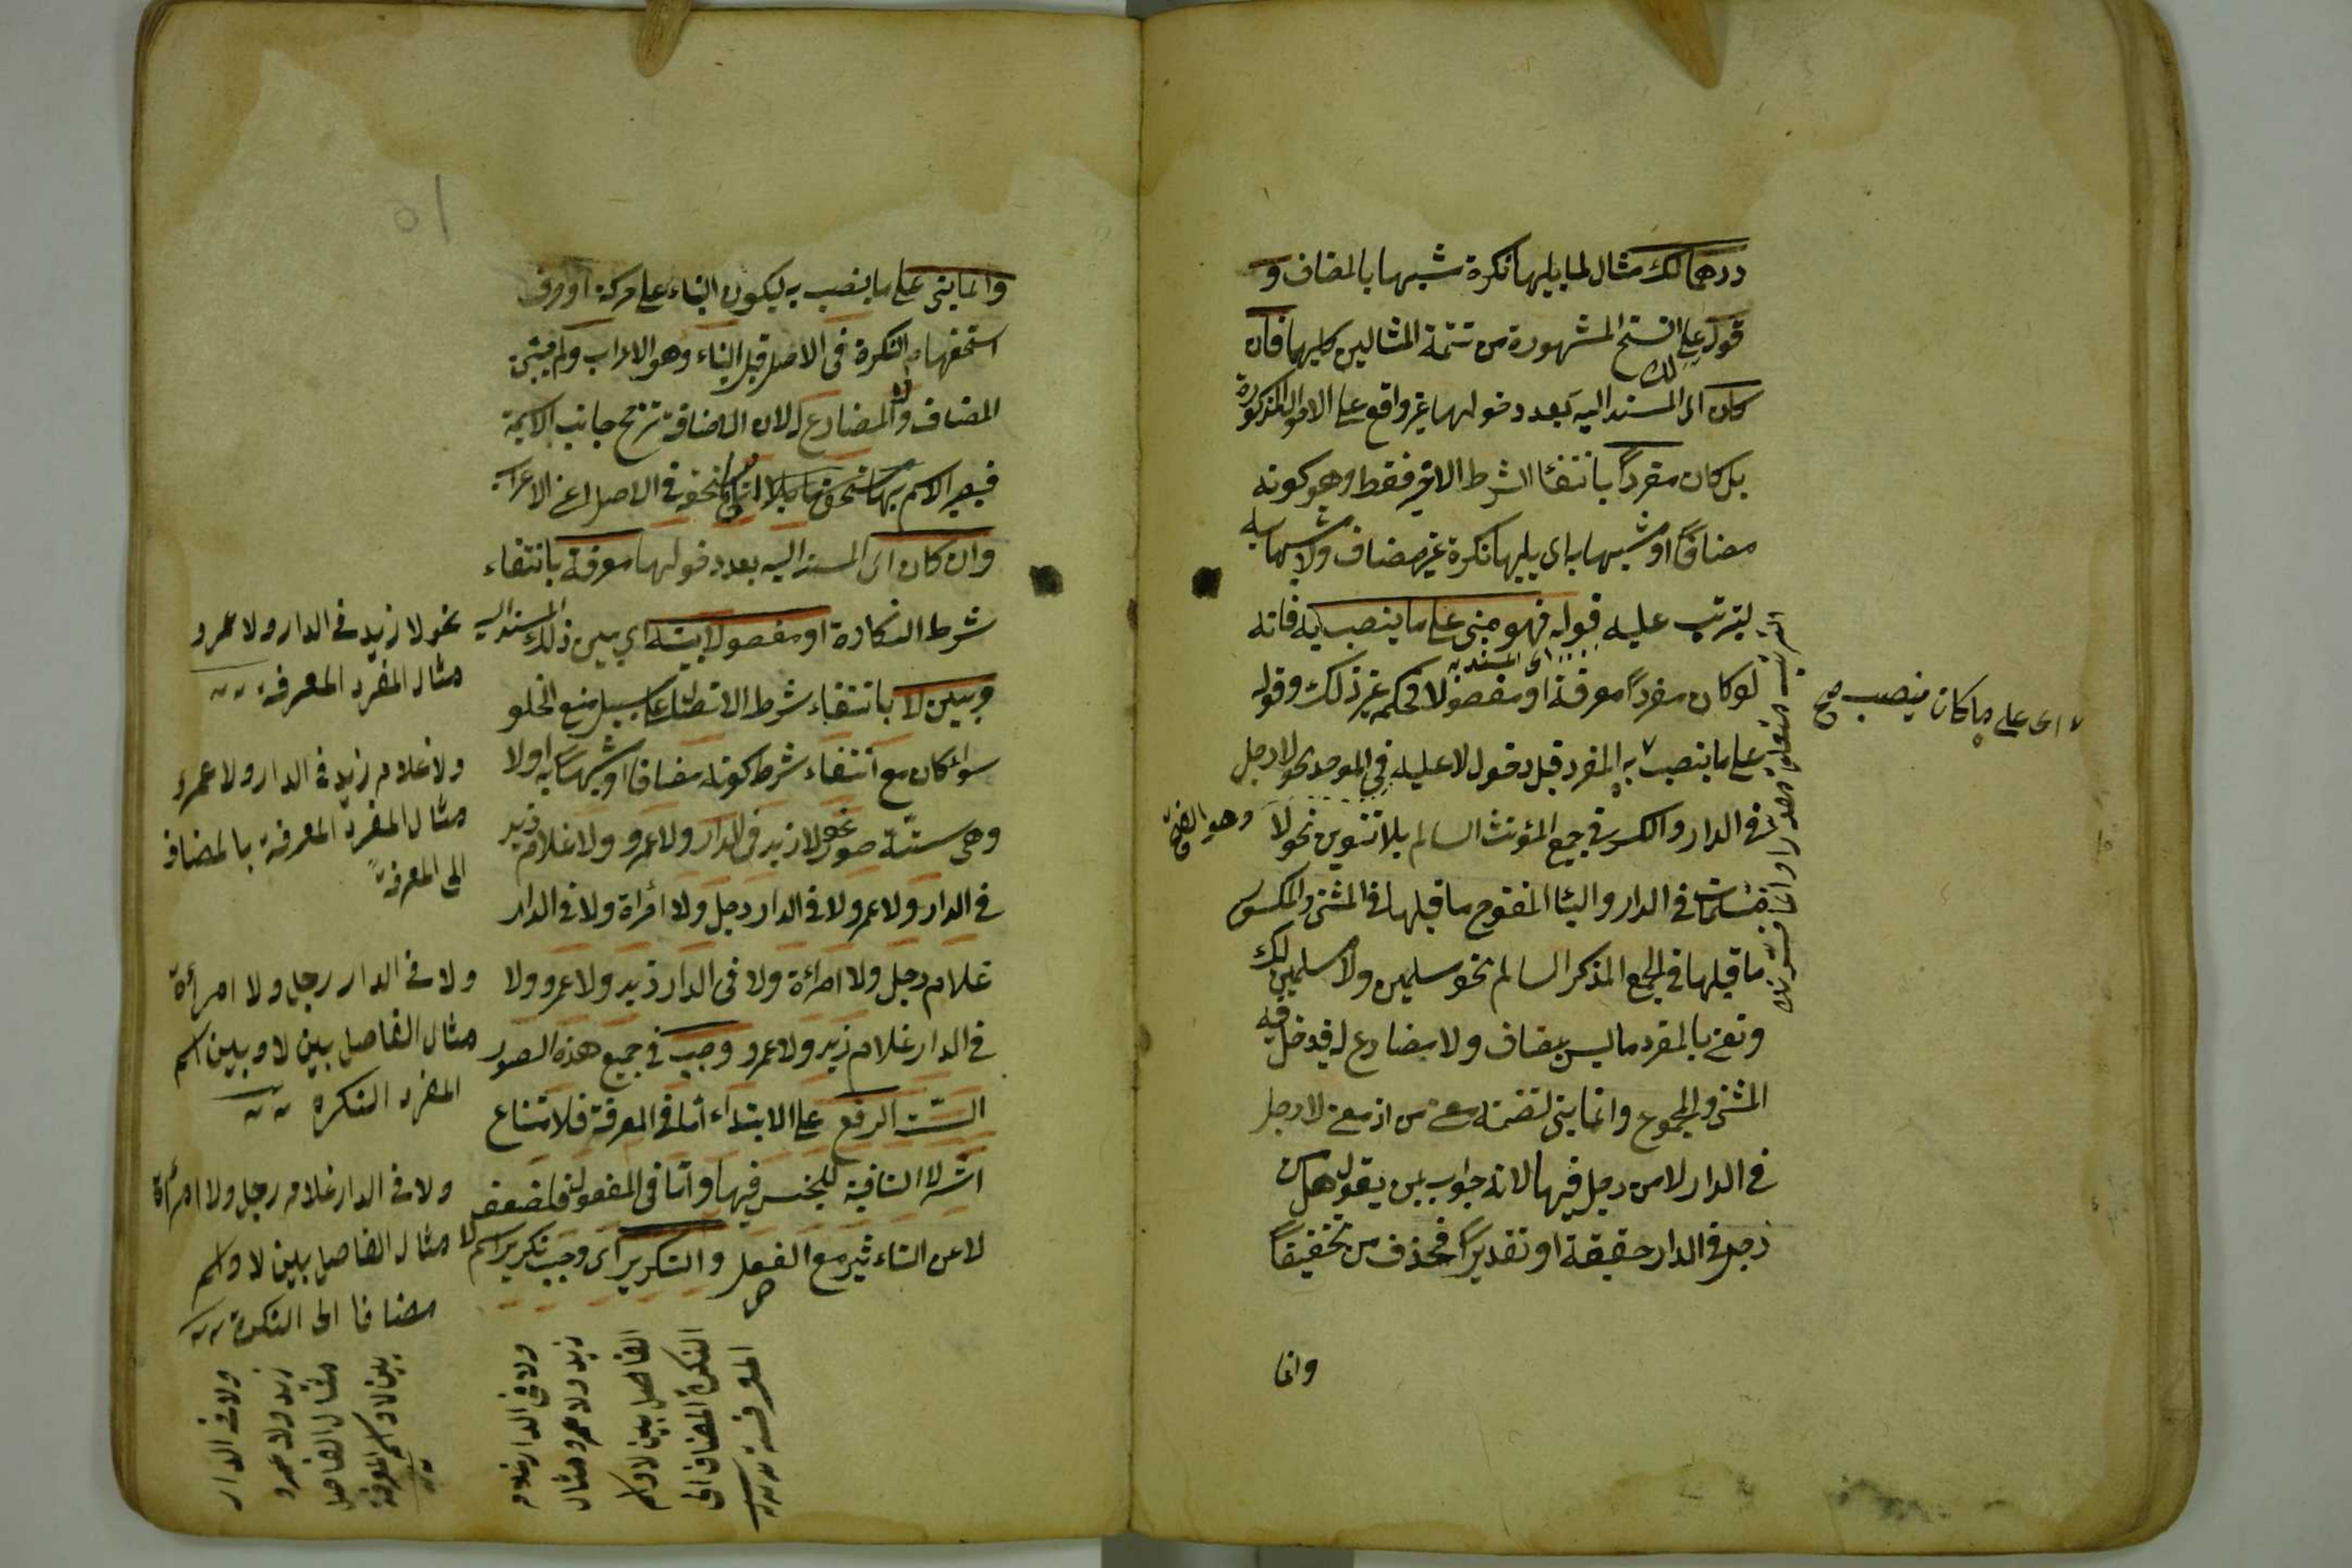 درهما لك مثال لما يليها نكرة شبيها بالمضاف و
قوله على النسخ المشهورة من تتمة المثالين كليهما فان
كان اى المسند اليه بعد دخولها غير واقع على الاحوال المذكورة
بل كان مفرداً بانتفاء الشرط الاخير فقط وهو كونه
مضافاً او شبيها به اى يليها نكرة غير مضاف ولا شبيها به
ليترتب عليه قوله فهو مبنى على ما ينصب به فانه
اى المسند به
لو كان مفرداً معرفة او مفصولا فحكمه غير ذلك وقوله
على ما ينصب به المفرد قبل دخول لا عليه وهو الفتح فى الموحد نحو لا رجل
فى الدار والكسر فى جمع المؤنث السالم بلا تنوين نحو لا
مسلمات فى الدار والياء المفتوح ما قبلها فى المثنى والمكسور
ما قبلها فى الجمع المذكر السالم نحو مسلمين ولا مسلمين لك
ونعنى بالمفرد ما ليس بمضاف ولا مضارع له فيدخل فيه
المثنى والمجموع وانما بنى لتضمنه معنى من اذ معنى لا رجل
فى الدار لا من رجل فيها لانه جواب لمن يقول هل من
رجل فى الدار حقيقة او تقديراً فحذف من تخفيفاً
وانما
اى على ما كان ينصب صح
وانما بنى على ما ينصب به ليكون البناء على حركة او حرف
استحقها النكرة فى الاصل قبل البناء وهو الاعراب ولم يبن
المضاف ولا المضارع له لان الاضافة ترجح جانب الاسمية
فيصير الاسم بها الى ما يستحقه فى الاصل اعنى الاعراب
وان كان اى المسند اليه بعد دخولها معرفة بانتفاء
شرط النكارة او مفصولا بينه اى بين ذلك المسند اليه
وبين لا بانتفاء شرط الاتصال على سبيل منع الخلو
سواء كان مع انتفاء شرط كونه مضافا او شبيها به اولا
وهى ستة صور نحو لا زيد فى الدار ولا عمرو ولا غلام زيد
فى الدار ولا عمرو ولا فى الدار رجل ولا امرأة ولا فى الدار
غلام رجل ولا امرأة ولا فى الدار زيد ولا عمرو ولا
فى الدار غلام زيد ولا عمرو وجب فى جميع هذه الصور
الست الرفع على الابتداء اما فى المعرفة فلامتناع
اثر لا النافية للجنس فيها واما فى المفصول فلضعف
لا عن التاءثير مع الفصل والتكرير اى وجب تكرير اسم لا
نحو لا زيد فى الدار ولا عمرو
مثال المفرد المعرفة
ولا غلام زيد فى الدار ولا عمرو
مثال المفرد المعرفة بالمضاف
الى المعرفة
ولا فى الدار رجل ولا امرأة
مثال الفاصل بين لا وبين اسم
المفرد النكرة
ولا فى الدار غلام رجل ولا امرأة
مثال الفاصل بين لا واسم
مضافا الى النكرة
ولا فى الدار
زيد ولا عمرو
مثال الفاصل
بين لا واسم المعرفة
ولا فى الدار غلام
زيد ولا عمرو مثال
الفاصل بين لا واسم
النكرة المضاف الى
المعرفة